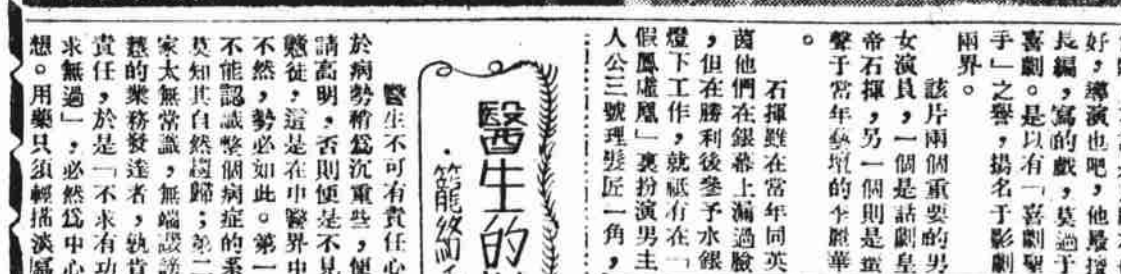 好,導演也吧,他最擅
長編,寫的戲,莫過于
喜劇。是以有「喜劇聖
手」之譽,揚名于影劇
兩界。
該片兩個重要的男
女演員,一個是話劇皇
帝石揮,另一個則是蜚
聲于當年藝壇的李麗華
。
石揮雖在當年同英
茵他們在銀幕上漏過臉
,但在勝利後參予水銀
燈下工作,就祇有在「
假鳳虛凰」裏扮演男主
人公三號理髮匠一角,
醫生的
醫生不可有責任心
於病勢稍爲沉重些,便
請高明,否則便是不見
徒,這是在中醫界中
不然,勢必如此。第一
不能認識整個病症的系
莫知其自然趨歸;第二
家太無常識,無端譭謗
的業務發達者,孰肯
責任,於是「不求有功
求無過」,必然爲中心
想。用藥只須輕描淡寫